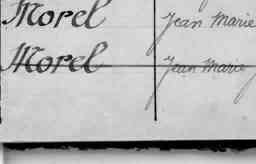 Morel Jean Marie
Morel Jean Marie